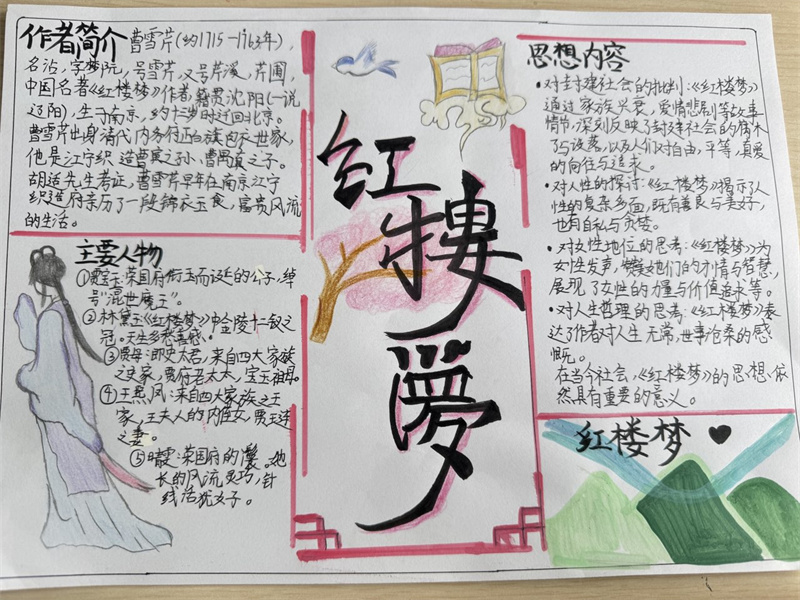 作者简介 曹雪芹(约1715—1763年),
名沾,字梦阮,号雪芹,又号芹溪,芹圃,
中国名著《红楼梦》作者,籍贯沈阳(一说
辽阳),生于南京,约十三岁时迁回北京。
曹雪芹出身清代内务府正白旗包衣世家,
他是江宁织造曹寅之孙、曹顒之子。
胡适先生考证,曹雪芹早年在南京江宁
织造府亲历了一段锦衣玉食,富贵风流
的生活。
主要人物
①贾宝玉:荣国府衔玉而诞的公子,绰
号“混世魔王”。
②林黛玉《红楼梦》中金陵十二钗之
冠。天生多愁善感。
③贾母:即史太君,来自四大家族
之史家,贾府老太太,宝玉祖母。
④王熙凤:来自四大家族之王
家,王夫人的内侄女,贾琏
之妻。
⑤晴雯:荣国府的丫鬟。她
长的风流灵巧,针
线活犹好。
红
楼
夢
思想内容
•对封建社会的批判:《红楼梦》
通过家族兴衰,爱情悲剧等故事
情节,深刻反映了封建社会的腐朽
与没落,以及人们对自由,平等,真爱
的向往与追求。
•对人性的探讨:《红楼梦》揭示了人
性的复杂多面,既有善良与美好,
也有自私与贪婪。
•对女性地位的思考:《红楼梦》为
女性发声,她们的才情与智慧,
展现了女性的力量与价值追求等。
•对人生哲理的思考:《红楼梦》表
达了作者对人生无常,世事沧桑的感
慨。
在当今社会,《红楼梦》的思想依
然具有重要的意义。
红楼梦